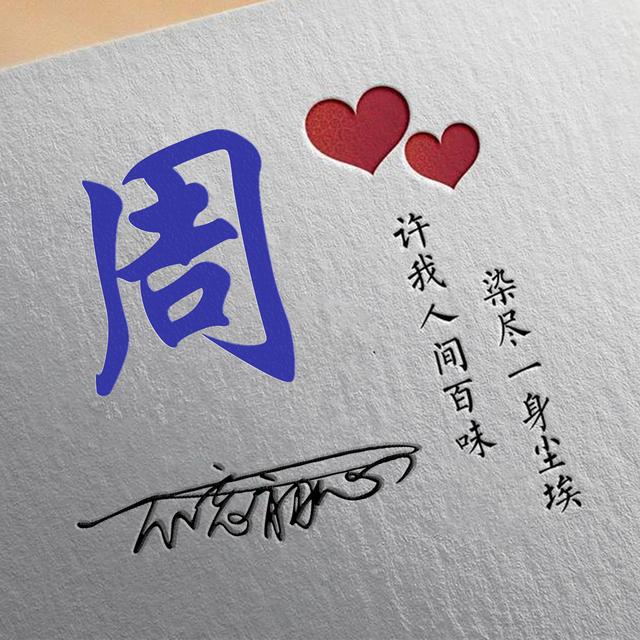 周
许我人间百味
染尽一身尘埃